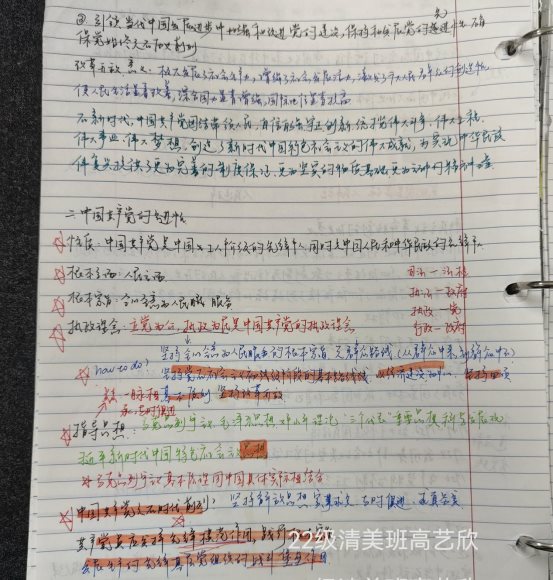 ③ 引领当代中国发展进步中加强和改进党的建设,保持和发展党的先进性,确
保党始终走在时代前列
改革开放意义:极大解放了社会生产力,增强了社会发展活力,
使人民生活显著改善,综合国力显著增强,国际地位显著提高
在新时代,中国共产党团结带领人民,自信自强守正创新,统揽伟大斗争,伟大工程,
伟大事业,伟大梦想,创造了新时代中国特色社会主义的伟大成就,为实现中华民族
伟大复兴提供了更为完善的制度保证,更为坚实的物质基础,更为主动的精神力量
二.中国共产党的先进性
性质:中国共产党是中国工人阶级的先锋队,同时是中国人民和中华民族的先锋队
根本立场:人民立场
司法—法检
根本宗旨:全心全意为人民服务
执法—政府
执政—党
执政理念:立党为公,执政为民是中国共产党的执政理念
行政—政府
坚持全心全意为人民服务的根本宗旨
how to do:
坚持改革开放
与时俱进
指导思想:马克思列宁主义 毛泽东思想 邓小平理论 “三个代表”重要思想 科学发展观
习近平新时代中国特色社会主义思想
马克思列宁主义基本原理同中国具体实际相结合
中国共产党走在时代前列:坚持解放思想 实事求是 与时俱进 求真务实
22级清美班高艺欣